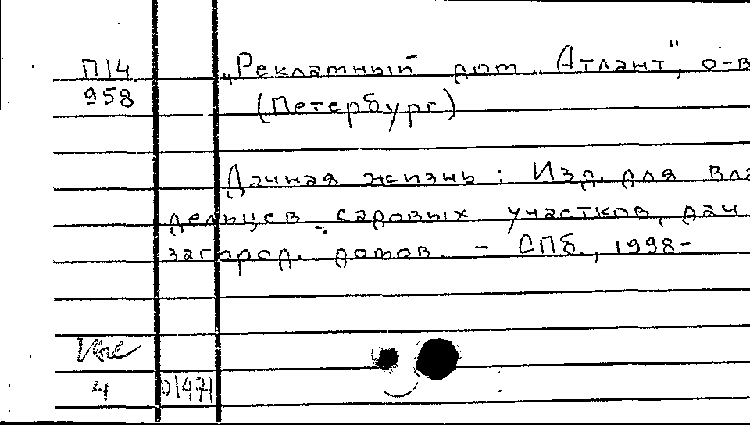 П14 „Рекламный дом „Атлант", о-в
958 (Петербург)
Дачная жизнь : Изд. для вла
дельцев садовых участков, дач
загород. домов. - СПб., 1998-
4 01471